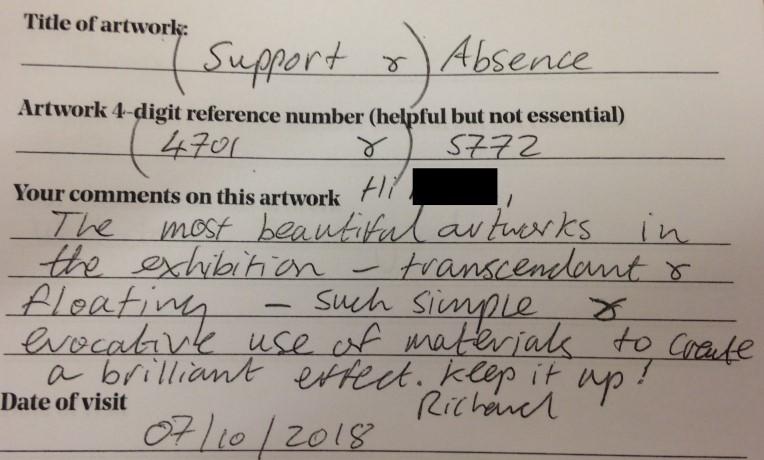 Title of artwork:
(Support & ) Absence
Artwork 4-digit reference number (helpful but not essential)
(4701 & ) 5772
Your comments on this artwork Hi ,
The most beautiful artworks in
the exhibition – transcendant &
floating – such simple &
evocative use of materials to create
a brilliant effect. Keep it up!
Richard
Date of visit
07/10/2018